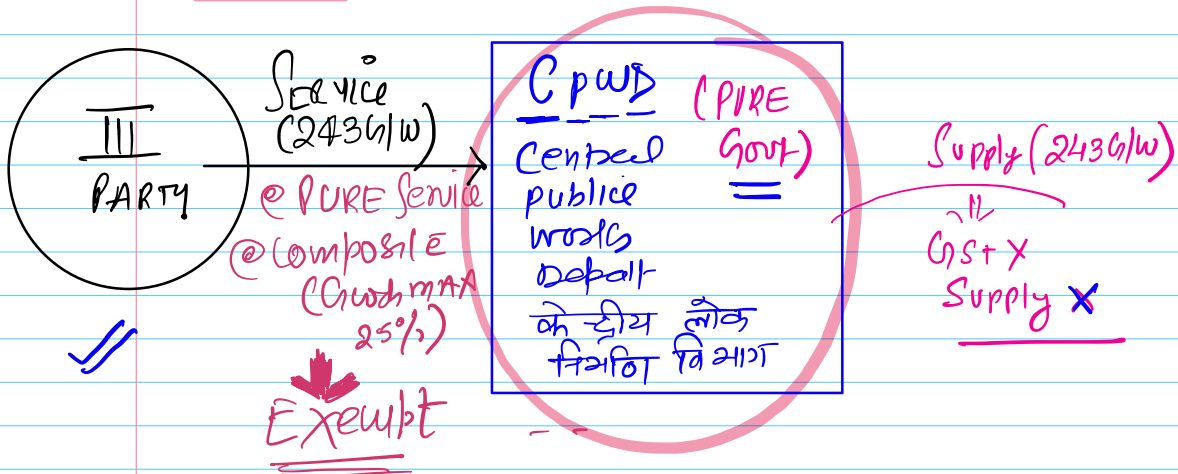 III
PARTY
Service
(243G/W)
@ PURE Service
@ Composite
(Goods MAX
25%)
Exempt
CPWD
(PURE
Govt)
Centeral
publice
works
Depatt
केन्द्रीय लोक
निर्माण विभाग
Supply (243G/W)
GST X
Supply X